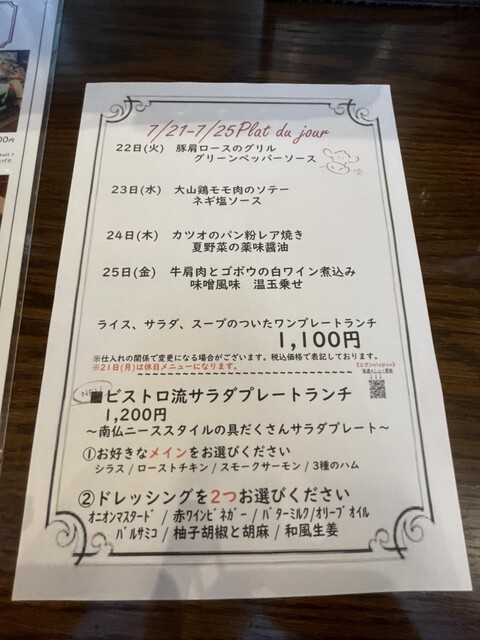 7/21-7/25 Plat du jour
22日(火) 豚肩ロースのグリル
グリーンペッパーソース
23日(水) 大山鶏モモ肉のソテー
ネギ塩ソース
24日(木) カツオのパン粉レア焼き
夏野菜の薬味醤油
25日(金) 牛肩肉とゴボウの白ワイン煮込み
味噌風味 温玉乗せ
ライス、サラダ、スープのついたワンプレートランチ
1,100円
※仕入れの関係で変更になる場合がございます。税込価格で表記しております。
※21日(月)は休日メニューになります。
NEW!
■ビストロ流サラダプレートランチ
1,200円
〜南仏ニーススタイルの具だくさんサラダプレート〜
①お好きなメインをお選びください
シラス / ローストチキン / スモークサーモン / 3種のハム
②ドレッシングを2つお選びください
オニオンマスタード / 赤ワインビネガー / バターミルク / オリーブオイル
バルサミコ / 柚子胡椒と胡麻 / 和風生姜